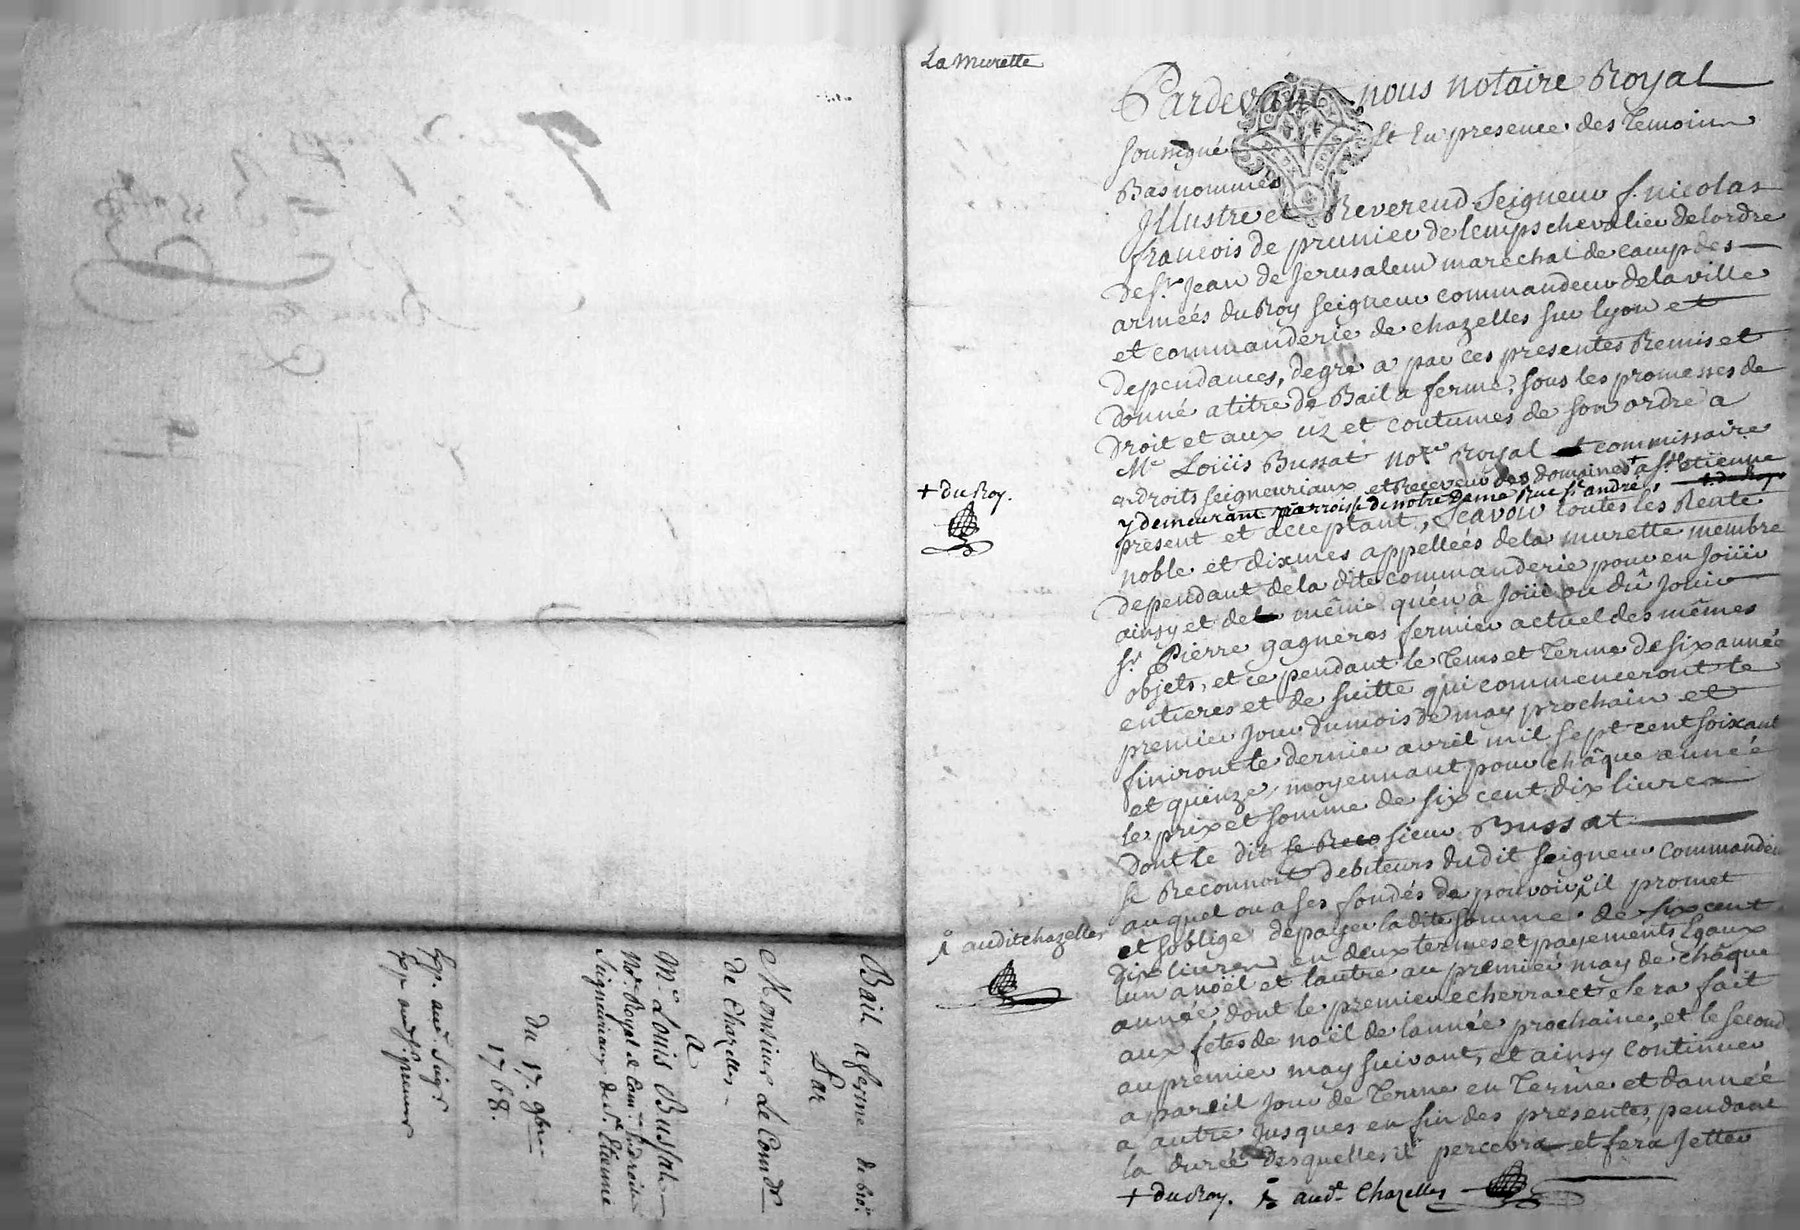 La Murette
Pardevant nous notaire Royal
soussigné et En presence des temoins
Bas nommés
Jllustre et Reverend Seigneur f. nicolas
francois de prunier de lemps chevalier de lordre
de st. Jean de Jerusalem maréchal de camp des
armées du Roy seigneur commandeur de la ville
et commanderie de chazelles sur lyon et
dependances, de gré a par ces presentes Remis et
donné a titre de Bail a ferme, sous les promesses de
droit et aux uz et coutumes de son ordre a
Me. Loüis Bussat nore. Royal et commissaire
a droits seigneuriaux et Receveur des domaines + a st. etiënne
y demeurant parroisse de notre dame Rue st. andré,
present et acceptant, Scavoir toutes les Rente
noble et dixmes appelleés de la murette membre
dependant de la dite commanderie pour en Joüir
ainsy et de même qu'en a Joüi ou dû Jouir
sr. Pierre gagneres fermier actuel des mêmes
objets, et ce pendant le tems et terme de six année
entieres et de suitte qui commenceront le
premier Jour du mois de may prochain et
finiront le dernier avril mil sept cent soixant
et quinze, moyennant pour châque année
le prix et somme de six cent dix livres
dont le dit sieur Bussat
se Reconnoit debiteurs du dit seigneur commandeur
auquel ou a ses fondés de pouvoir, il promet
et soblige de payer la dite somme de six cent
dix livres en deux termes et payements Egaux
lun a noël et lautre au premier may de châque
année dont le premier echerra et sera fait
aux fetes de noël de lannée prochaine, et le second
au premier may suivant, et ainsy continuer
a pareil Jour de terme en terme et dannéé
a autre Jusques en fin des presentes, pendant
la durée desquelles il percevra et fera Jetter
+ du Roy. aud. Chazelles
+ du Roy.
audit chazelles
Bail a ferme
Par
Monsieur Le Comdr
de Chazelles
A
Me. Loüis Bussat
Nore. Royal & Comre. a droits
Seigneuriaux de st. Etienne
du 17. 9bre
1768.